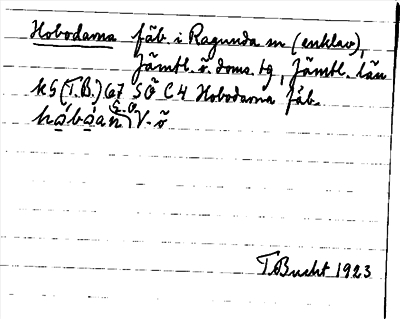 Hobodarna fäb. i Ragunda sn (enklav),
Jämtl. ö. doms. tg, Jämtl. län
k5 (T.B.) 67 SÖ C4 Hobodarna fäb.
hɑ̀bɑ̀an G.O. V. ö
T. Bucht 1923